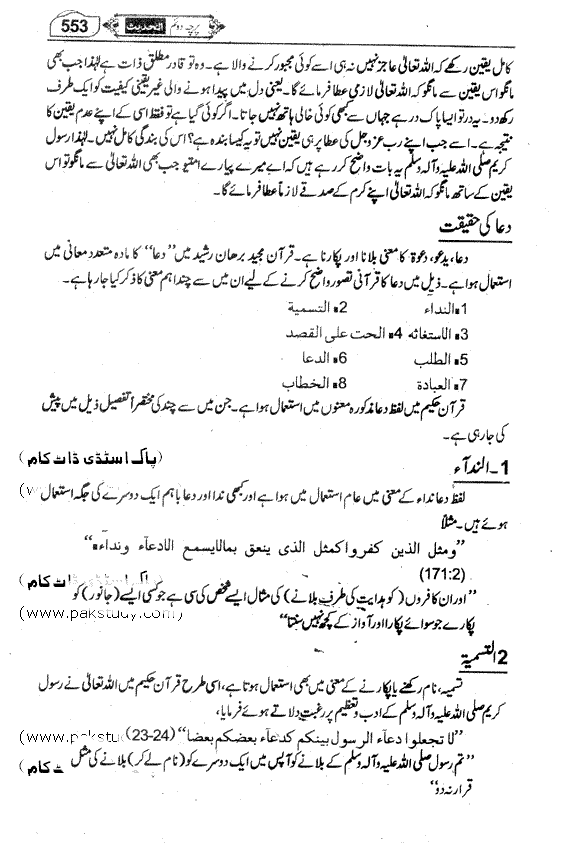 553 الحدیث پرچہ دوئم
کامل یقین رکھے کہ اللہ تعالیٰ عاجز نہیں نہ ہی اسے کوئی مجبور کرنے والا ہے۔ وہ تو قادر مطلق ذات ہے لہٰذا جب بھی
مانگو اس یقین سے مانگو کہ اللہ تعالیٰ لازمی عطا فرمائے گا۔ یعنی دل میں پیدا ہونے والی غیر یقینی کیفیت کو ایک طرف
رکھ دو۔ یہ در تو ایسا پاک در ہے جہاں سے کبھی کوئی خالی ہاتھ نہیں جاتا۔ اگر کوئی گیا ہے تو فقط اسی کے اپنے عدم یقین کا
نتیجہ ہے۔ اسے جب اپنے رب عزوجل کی عطا پر ہی یقین نہیں تو یہ کیسا بندہ ہے؟ اس کی بندگی کامل نہیں۔ لہٰذا رسول
کریم صلی اللہ علیہ وآلہ وسلم یہ بات واضح کر رہے ہیں کہ اے میرے پیارے امتیو جب بھی اللہ تعالیٰ سے مانگو تو اس
یقین کے ساتھ مانگو کہ اللہ تعالیٰ اپنے کرم کے صدقے لازماً عطا فرمائے گا۔
دعا کی حقیقت
دعا، یدعو، دعوۃ کا معنی بلانا اور پکارنا ہے۔ قرآن مجید برھان رشید میں ”دعا“ کا مادہ متعدد معانی میں
استعمال ہوا ہے۔ ذیل میں دعا کا قرآنی تصور واضح کرنے کے لیے ان میں سے چند اہم معنی کا ذکر کیا جا رہا ہے۔
1۔ النداء 2۔ التسمیة
3۔ الاستغاثه 4۔ الحث علی القصد
5۔ الطلب 6۔ الدعا
7۔ العبادة 8۔ الخطاب
قرآن حکیم میں لفظ دعا مذکورہ معنوں میں استعمال ہوا ہے۔ جن میں سے چند کی مختصراً تفصیل ذیل میں پیش
کی جا رہی ہے۔
1۔ الندآء (پاک اسٹڈی ڈاٹ کام)
لفظ دعا نداء کے معنی میں عام استعمال میں ہوا ہے اور کبھی ندا اور دعا باہم ایک دوسرے کی جگہ استعمال
ہوئے ہیں۔ مثلاً
”ومثل الذین کفروا کمثل الذی ینعق بمالایسمع الادعآء ونداء۔“
(171:2)
”اور ان کافروں (کو ہدایت کی طرف بلانے) کی مثال ایسے شخص کی سی ہے جو کسی ایسے (جانور) کو
پکارے جو سوائے پکار اور آواز کے کچھ نہیں سنتا“ (www.pakstudy.com)
2 التسمیة
تسمیہ، نام رکھنے یا پکارنے کے معنی میں بھی استعمال ہوتا ہے، اسی طرح قرآن حکیم میں اللہ تعالیٰ نے رسول
کریم صلی اللہ علیہ وآلہ وسلم کے ادب و تعظیم پر رغبت دلاتے ہوئے فرمایا،
”لا تجعلوا دعآء الرسول بینکم کدعآء بعضکم بعضا“ (23-24)
”تم رسول صلی اللہ علیہ وآلہ وسلم کے بلانے کو آپس میں ایک دوسرے کو (نام لے کر) بلانے کی مثل
قرار نہ دو“